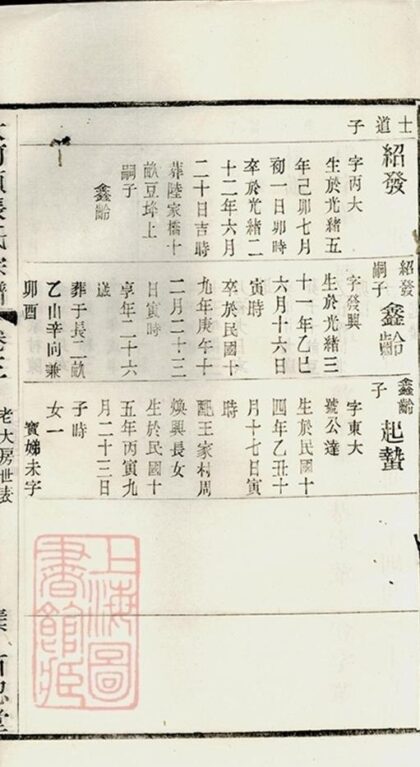 士道子
紹發
字丙大
生於光緒五
年己卯七月
初一日卯時
卒於光緒二
十二年六月
二十日吉時
葬陸家橋十
畝豆垰上
嗣子
鑫齡
紹發
嗣子
鑫齡
字發興
生於光緒三
十一年乙巳
六月十六日
寅時
卒於民國十
九年庚午十
二月二十三
日寅時
享年二十六
歲
葬于長二畝
乙山辛向兼
卯酉
鑫齡
子
起蟄
字東大
號公達
生於民國十
四年乙丑十
月十七日寅
時
配王家村周
煥興長女
生於民國十
五年丙寅九
月二十三日
子時
女一
寶娣未字
老大房世表
百忍堂
上海圖
書館藏